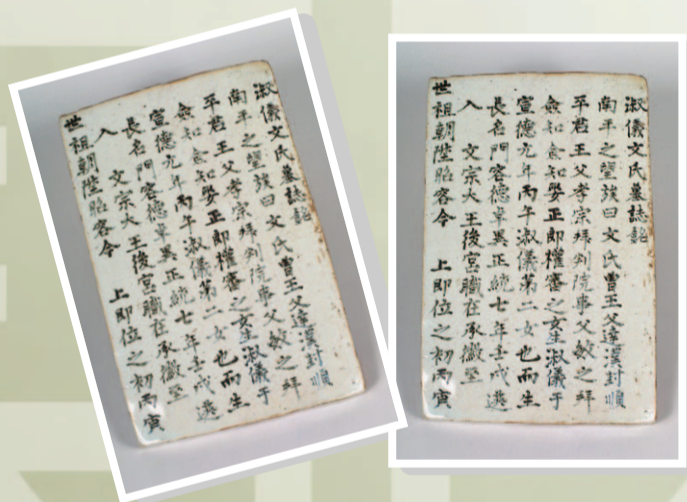 淑儀文氏墓誌銘
南平之望族曰文氏曾王父達漢封順
平君王父孝宗拜判院事父敏之拜
僉知僉知娶正郎權審之女生淑儀于
宣德元年丙午淑儀第二女也而生
長名門容德卓異正統七年壬戌選
入 文宗大王後宮職在承徽至
世祖朝陞昭容今 上即位之初丙寅
淑儀文氏墓誌銘
南平之望族曰文氏曾王父達漢封順
平君王父孝宗拜判院事父敏之拜
僉知僉知娶正郎權審之女生淑儀于
宣德元年丙午淑儀第二女也而生
長名門容德卓異正統七年壬戌選
入 文宗大王後宮職在承徽至
世祖朝陞昭容今 上即位之初丙寅